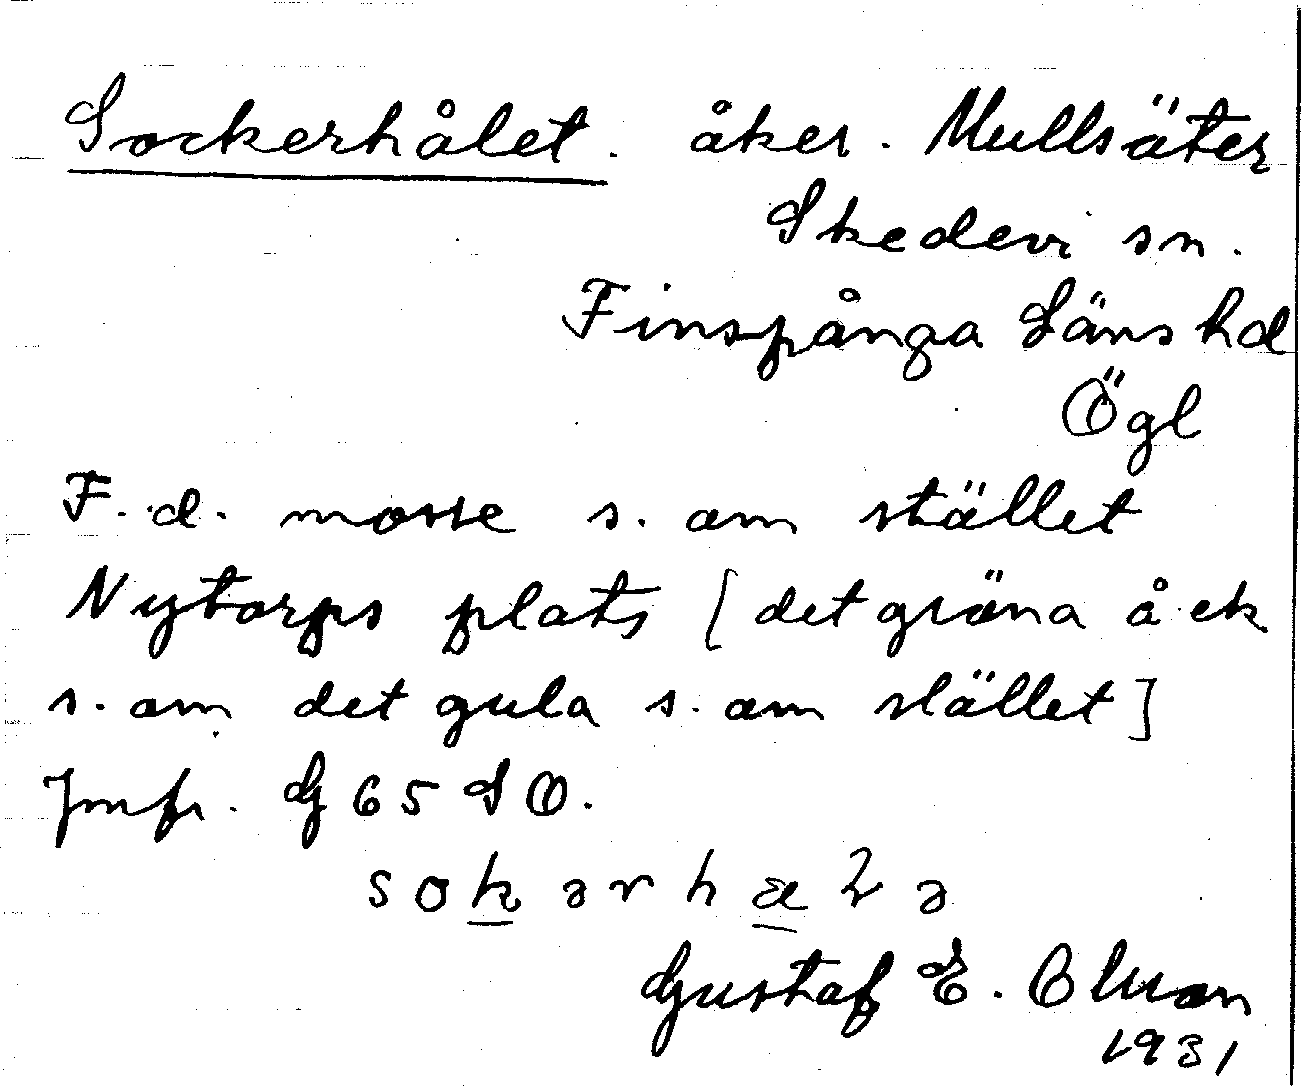 Sockerhålet. åker. Mullsäter
Skedevi sn.
Finspånga Läns hd
Ögl
F. d. mosse s. om stället
Nytorps plats [det gröna åek
s. om det gula s. om stället]
Jmfr. G 65 SO.
sokərhæ
Gustaf E. Olsson
1931